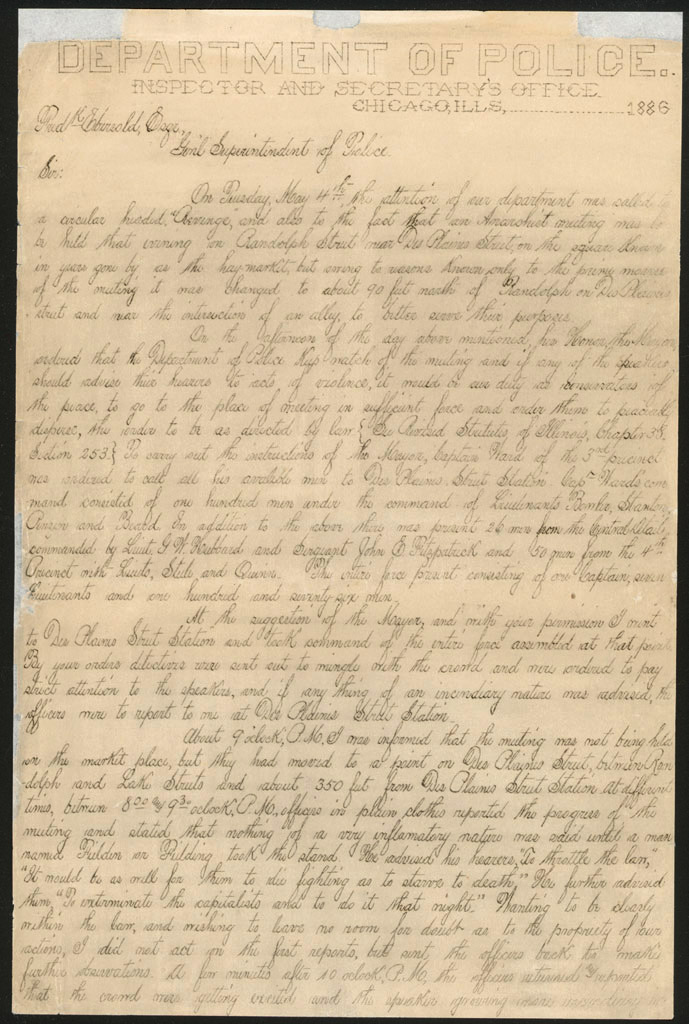 DEPARTMENT OF POLICE.
INSPECTOR AND SECRETARY'S OFFICE.
CHICAGO, ILLS, 1886
Fred'k Ebersold, Esqr,
Gen'l Superintendent of Police.
Sir:
On Tuesday, May 4th, the attention of our department was called to
a circular headed, "Revenge, and also to the fact that an Anarchist meeting was to
be held that evening on Randolph Street near Des Plaines Street, on the square known
in years gone by as the haymarket, but owing to reasons known only to the prime movers
of the meeting it was changed to about 90 feet north of Randolph on Des Plaines
street and near the intersection of an alley, to better serve their purposes.
On the afternoon of the day above mentioned, his Honor, the Mayor,
ordered that the Department of Police keep watch of the meeting and if any of the speakers
should advise their hearers to acts of violence, it would be our duty as conservators of
the peace, to go to the place of meeting in sufficient force and order them to peaceably
disperse, the order to be as directed by law {See Revised Statutes of Illinois, Chapter 38.
Section 253.} To carry out the instructions of the Mayor, Captain Ward of the 3rd precinct
was ordered to call all his available men to Des Plaines Street Station. Capt Ward's com
mand consisted of one hundred men under the command of Lieutenants Bowler, Stanton,
Penzen and Beard. In addition to the above there was present 26 men from the Central Detail,
commanded by Lieut. G. W. Hubbard and Sergeant John E. Fitzpatrick and 50 men from the 4th
Precinct with Lieuts. Steele, and Quinn. The entire force present consisting of one Captain, seven
Lieutenants and one hundred and seventy six men.
At the suggestion of the Mayor, and with your permission I went
to Des Plaines Street Station and took command of the entire force assembled at that point.
By your orders detectives were sent out to mingle with the crowd and were ordered to pay
strict attention to the speakers, and if any thing of an incendiary nature was advised, the
officers were to report to me at Des Plaines Street Station.
About 9 oclock, P.M. I was informed that the meeting was not being held
on the market place, but they had moved to a point on Des Plaines Street, between Ran
dolph and Lake Streets and about 350 feet from Des Plaines Street Station. At different
times, between 8 30 and 9 30 oclock, P.M., officers in plain clothes reported the progress of the
meeting and stated that nothing of a very inflamatory nature was said until a man
named Fielden or Fielding took the stand. He advised his hearers, "To throttle the law,"
"It would be as well for them to die fighting as to starve to death," He further advised
them, "To exterminate the capitalists and to do it that night." Wanting to be clearly
within the law, and wishing to leave no room for doubt as to the propriety of our
actions, I did not act on the first reports, but sent the officers back to make
further observations. A few minutes after 10 oclock, P.M. the officers returned and reported
that the crowd were getting excited and the speaker growing more incendiary in